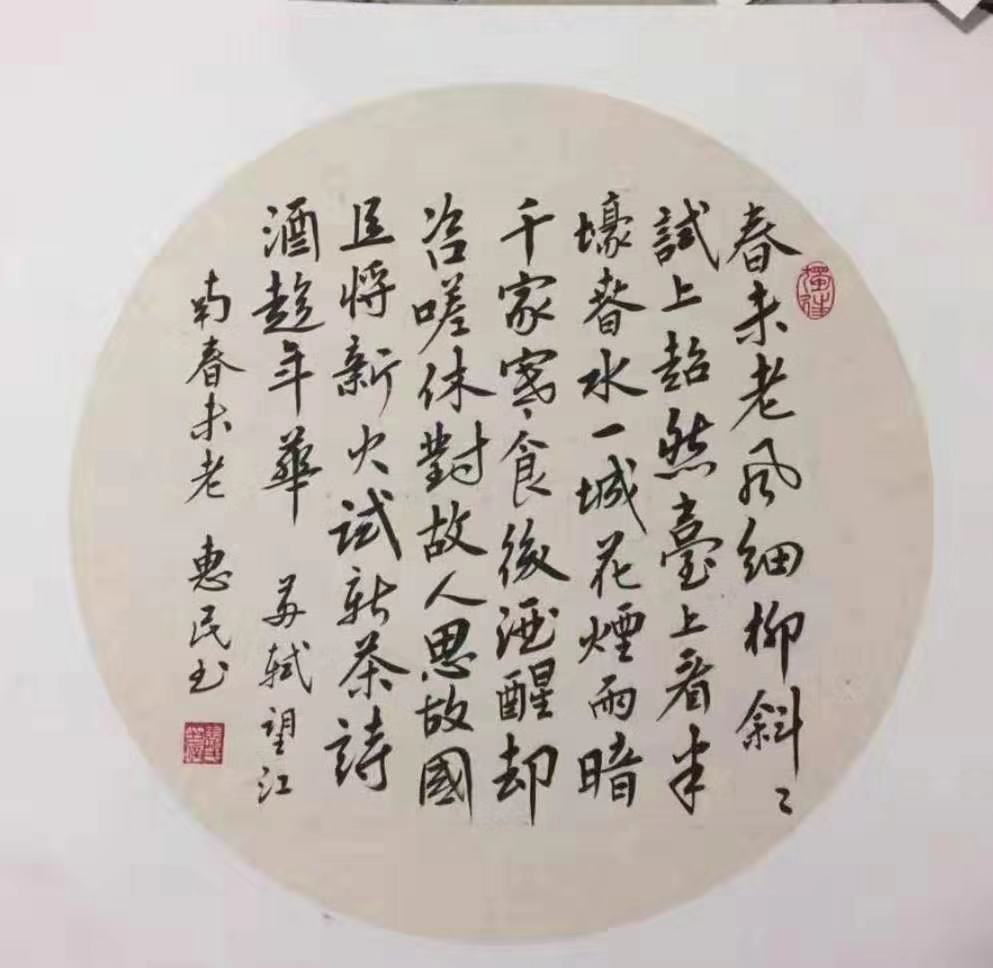 春未老風細柳斜〻
試上超然臺上看半
壕春水一城花煙雨暗
千家寒食後酒醒却
咨嗟休對故人思故國
且將新火試新茶詩
酒趁年華 蘇軾望江
南春未老 惠民书